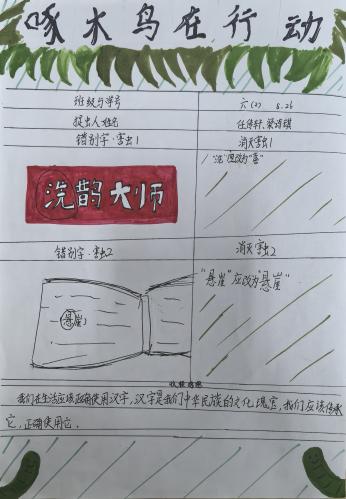 啄木鸟在行动
班级与学号
六(2) 5.26
捉虫人姓名
错别字·害虫1
消灭害虫1
"洗"应改为"喜"
洗鹊大师
错别字·害虫2
消灭害虫2
悬崖
"悬崖"应改为"悬崖"
收获感想
我们在生活应该正确使用汉字,汉字是我们中华民族的文化瑰宝,我们应该传承
它,正确使用它.